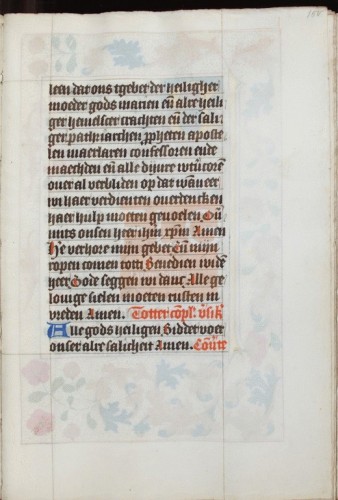 leen dat ons tgebet der heiligher
moeder gods marien eñ alre heili
ger hemelscer crachten eñ der sali
ger patriarchen propheten aposte
len martelaren confessoren ende
maechden eñ alle dijnre wtuͥcorē
over al verbliden op dat wāneer
wi haer verdienten overdencken
haer hulp moeten ghevoelen Oū
mits onsen heer ihū xpm̄ Amen
He verhore mijn gebet Eū mijn
ropen comen tot di Benedien wi dē
heer Gode seggen wi danc Alle ge
lovige sielen moeten rusten in
vreden Amen. Totter cōpl' v'sik'
Alle gods heiligen Bidder voer
onser alre salicheit Amen. Cōūte